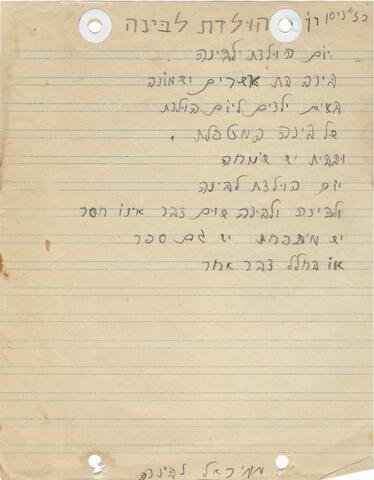 הולדת לבינה
יום הולדת לבינה
בינה בת אשרים ושמונה
באים ילדים ליום הולדת
של בינה המטפלת .
ובבית יש שמחה
יום הולדת לבינה
ולבינה ולבינה שום דבר אינו חסר
יש מיתפחת יש גם ספר
או בחלל דבר אחר
לבינה